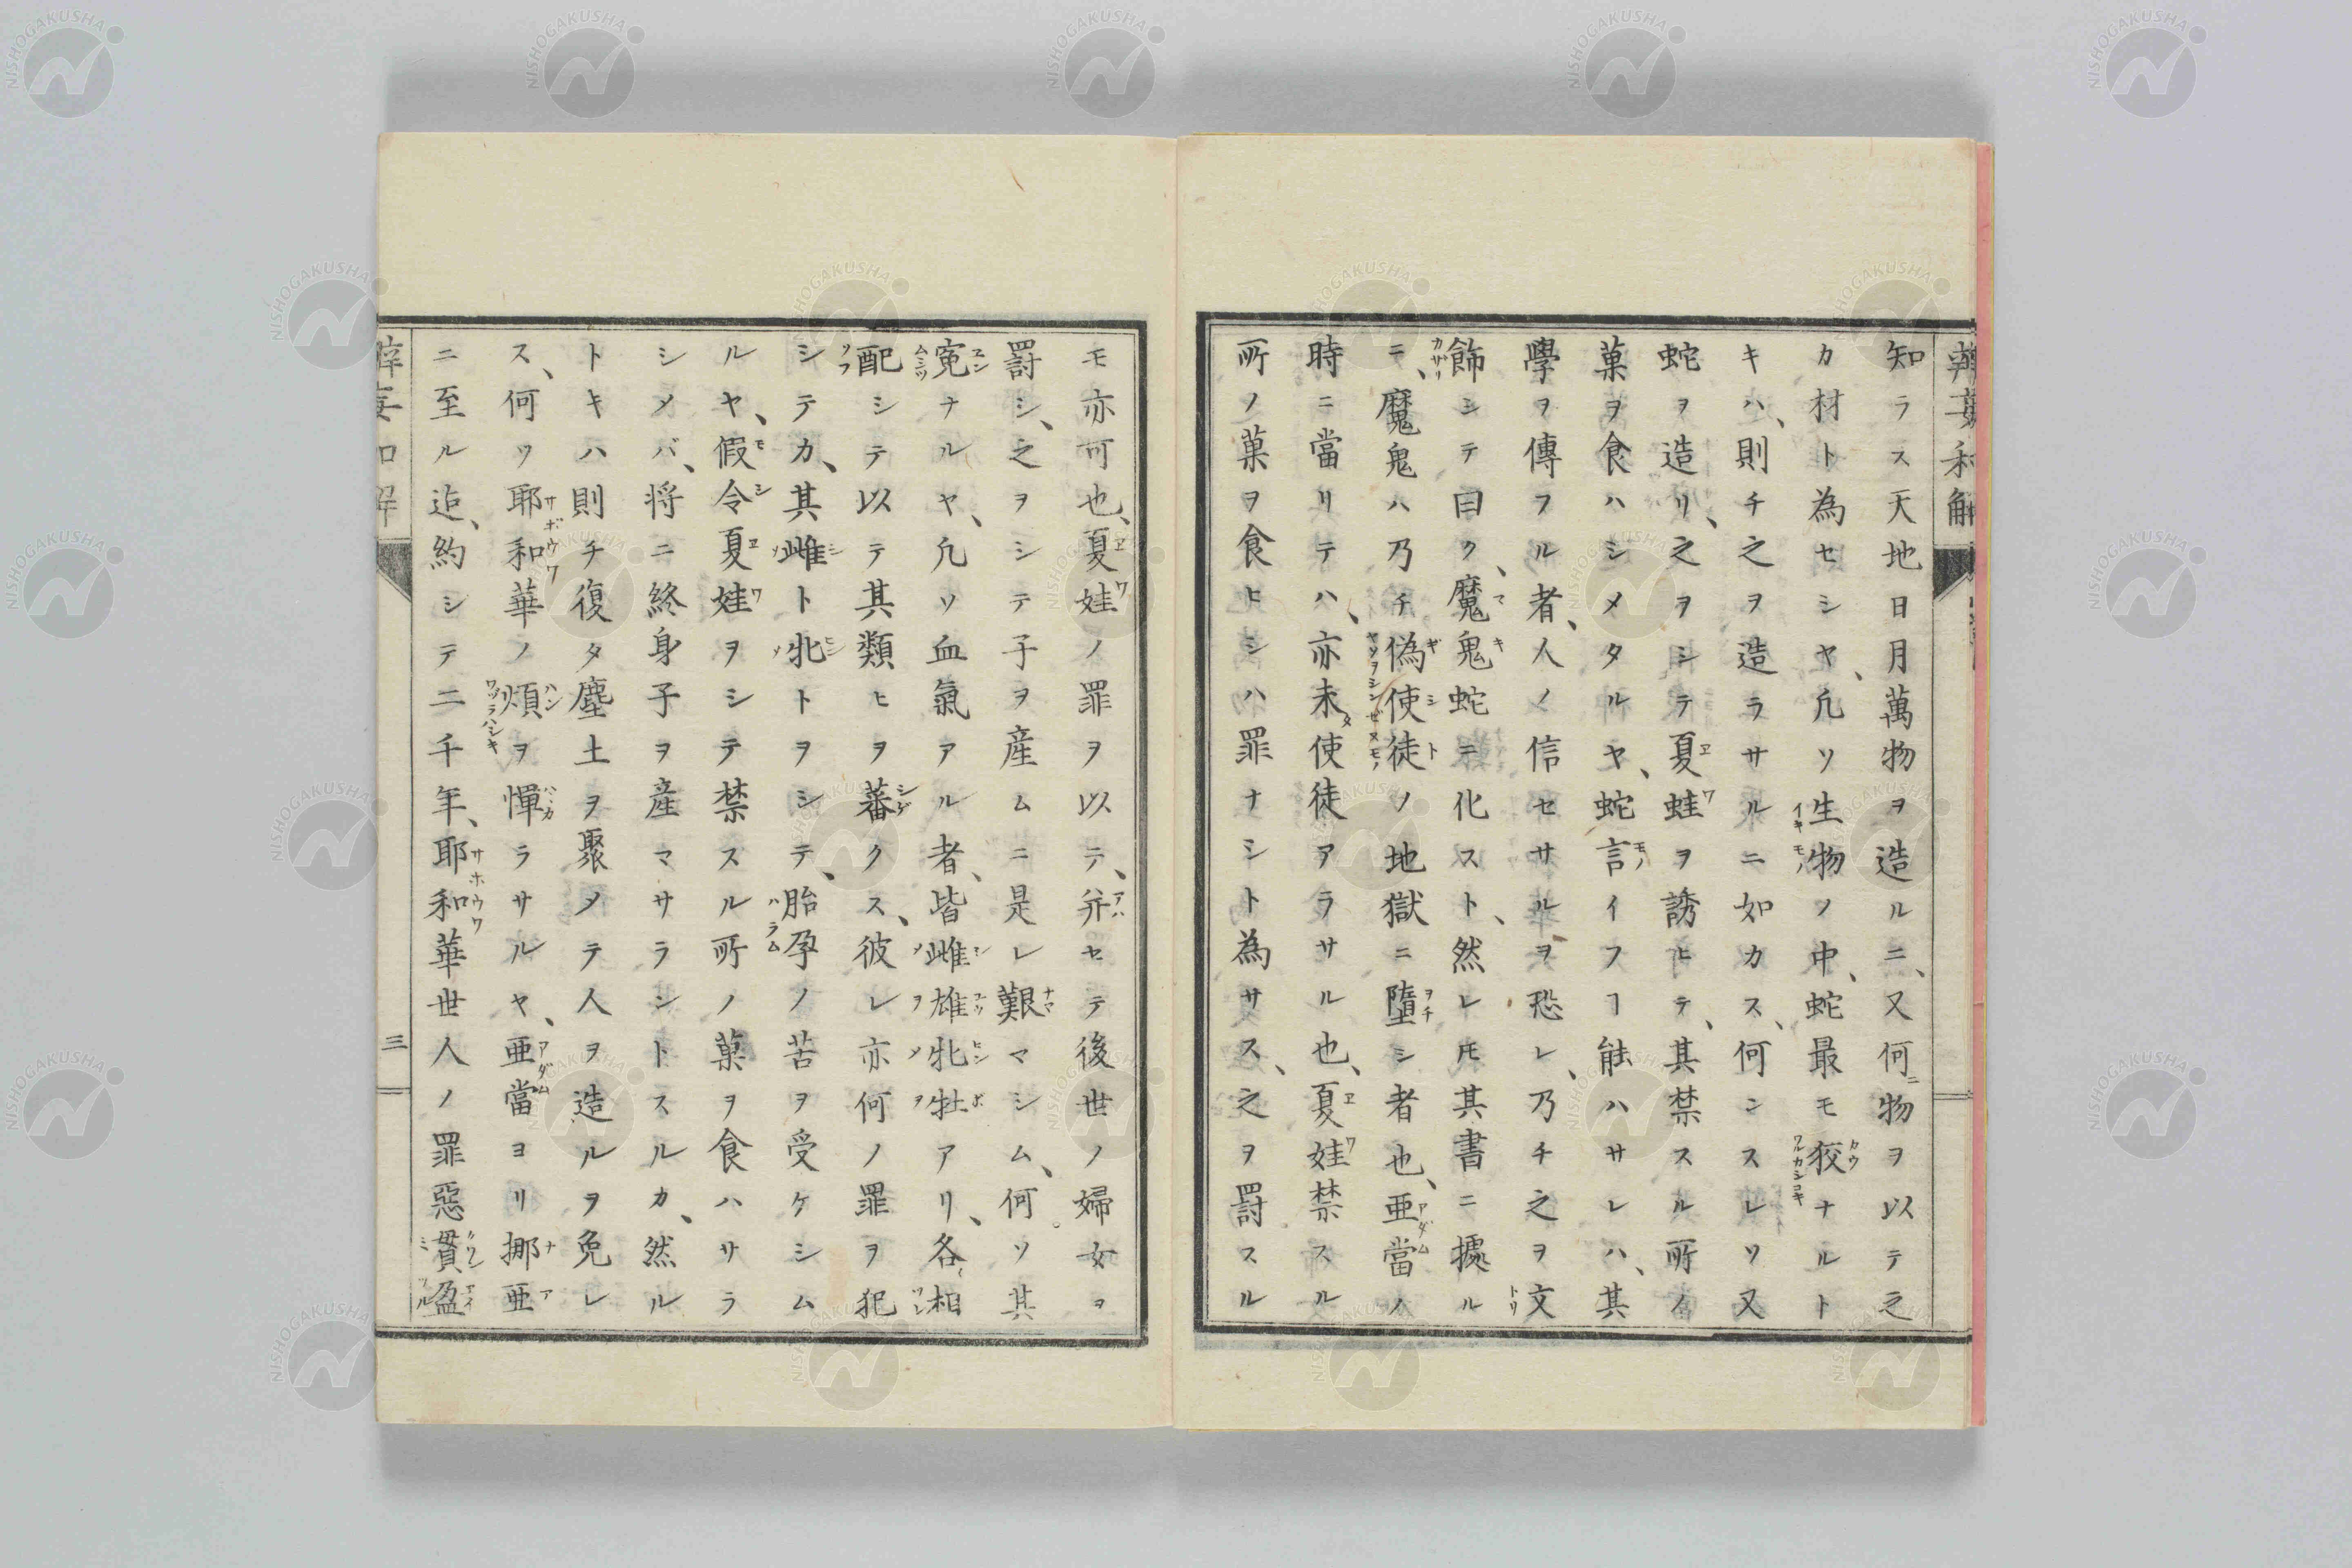 辨妄和解
知ラス天地日月萬物ヲ造ルニ、又何物ヲ以テ之
カ材ト為セシヤ、凡ソ生物ノ中、蛇最モ狡ナルト
キハ、則チ之ヲ造ラサルニ如カス、何ンスレソ又
蛇ヲ造リ、之ヲシテ夏蛙ヲ誘ヒテ、其禁スル所ノ
菓ヲ食ハシメタルヤ、蛇言イフヿ能ハサレハ、其
學ヲ傳フル者、人ノ信セサルヲ恐レ、乃チ之ヲ文
飾シテ曰ク、魔鬼蛇ニ化スト、然レ𪜈其書ニ據ル
ニ、魔鬼ハ乃チ偽使徒ノ地獄ニ墮シ者也、亜當ノ
時ニ當リテハ、亦未使徒アラサル也、夏娃禁スル
所ノ菓ヲ食ヒシハ罪ナシト為サス、之ヲ罸スル
モ亦可也、夏娃ノ罪ヲ以テ、并セテ後世ノ婦女ヲ
罸シ、之ヲシテ子ヲ産ムニ是レ艱マシム、何ソ其
寃ナルヤ、凡ソ血氣アル者、皆雌雄牝牡アリ、各相
配シテ以テ其類ヒヲ蕃クス、彼レ亦何ノ罪ヲ犯
シテカ、其雌ト牝トヲシテ、胎孕ノ苦ヲ受ケシム
ルヤ、假令夏娃ヲシテ禁スル所ノ菓ヲ食ハサラ
シメバ、将ニ終身子ヲ産マサラシトスルカ、然ル
トキハ則チ復タ塵土ヲ聚メテ人ヲ造ルヲ免レ
ス、何ソ耶和華ノ煩ヲ憚ラサルヤ、亜當ヨリ挪亜
ニ至ル迄、約シテ二千年、耶和華世人ノ罪惡貫盈
三